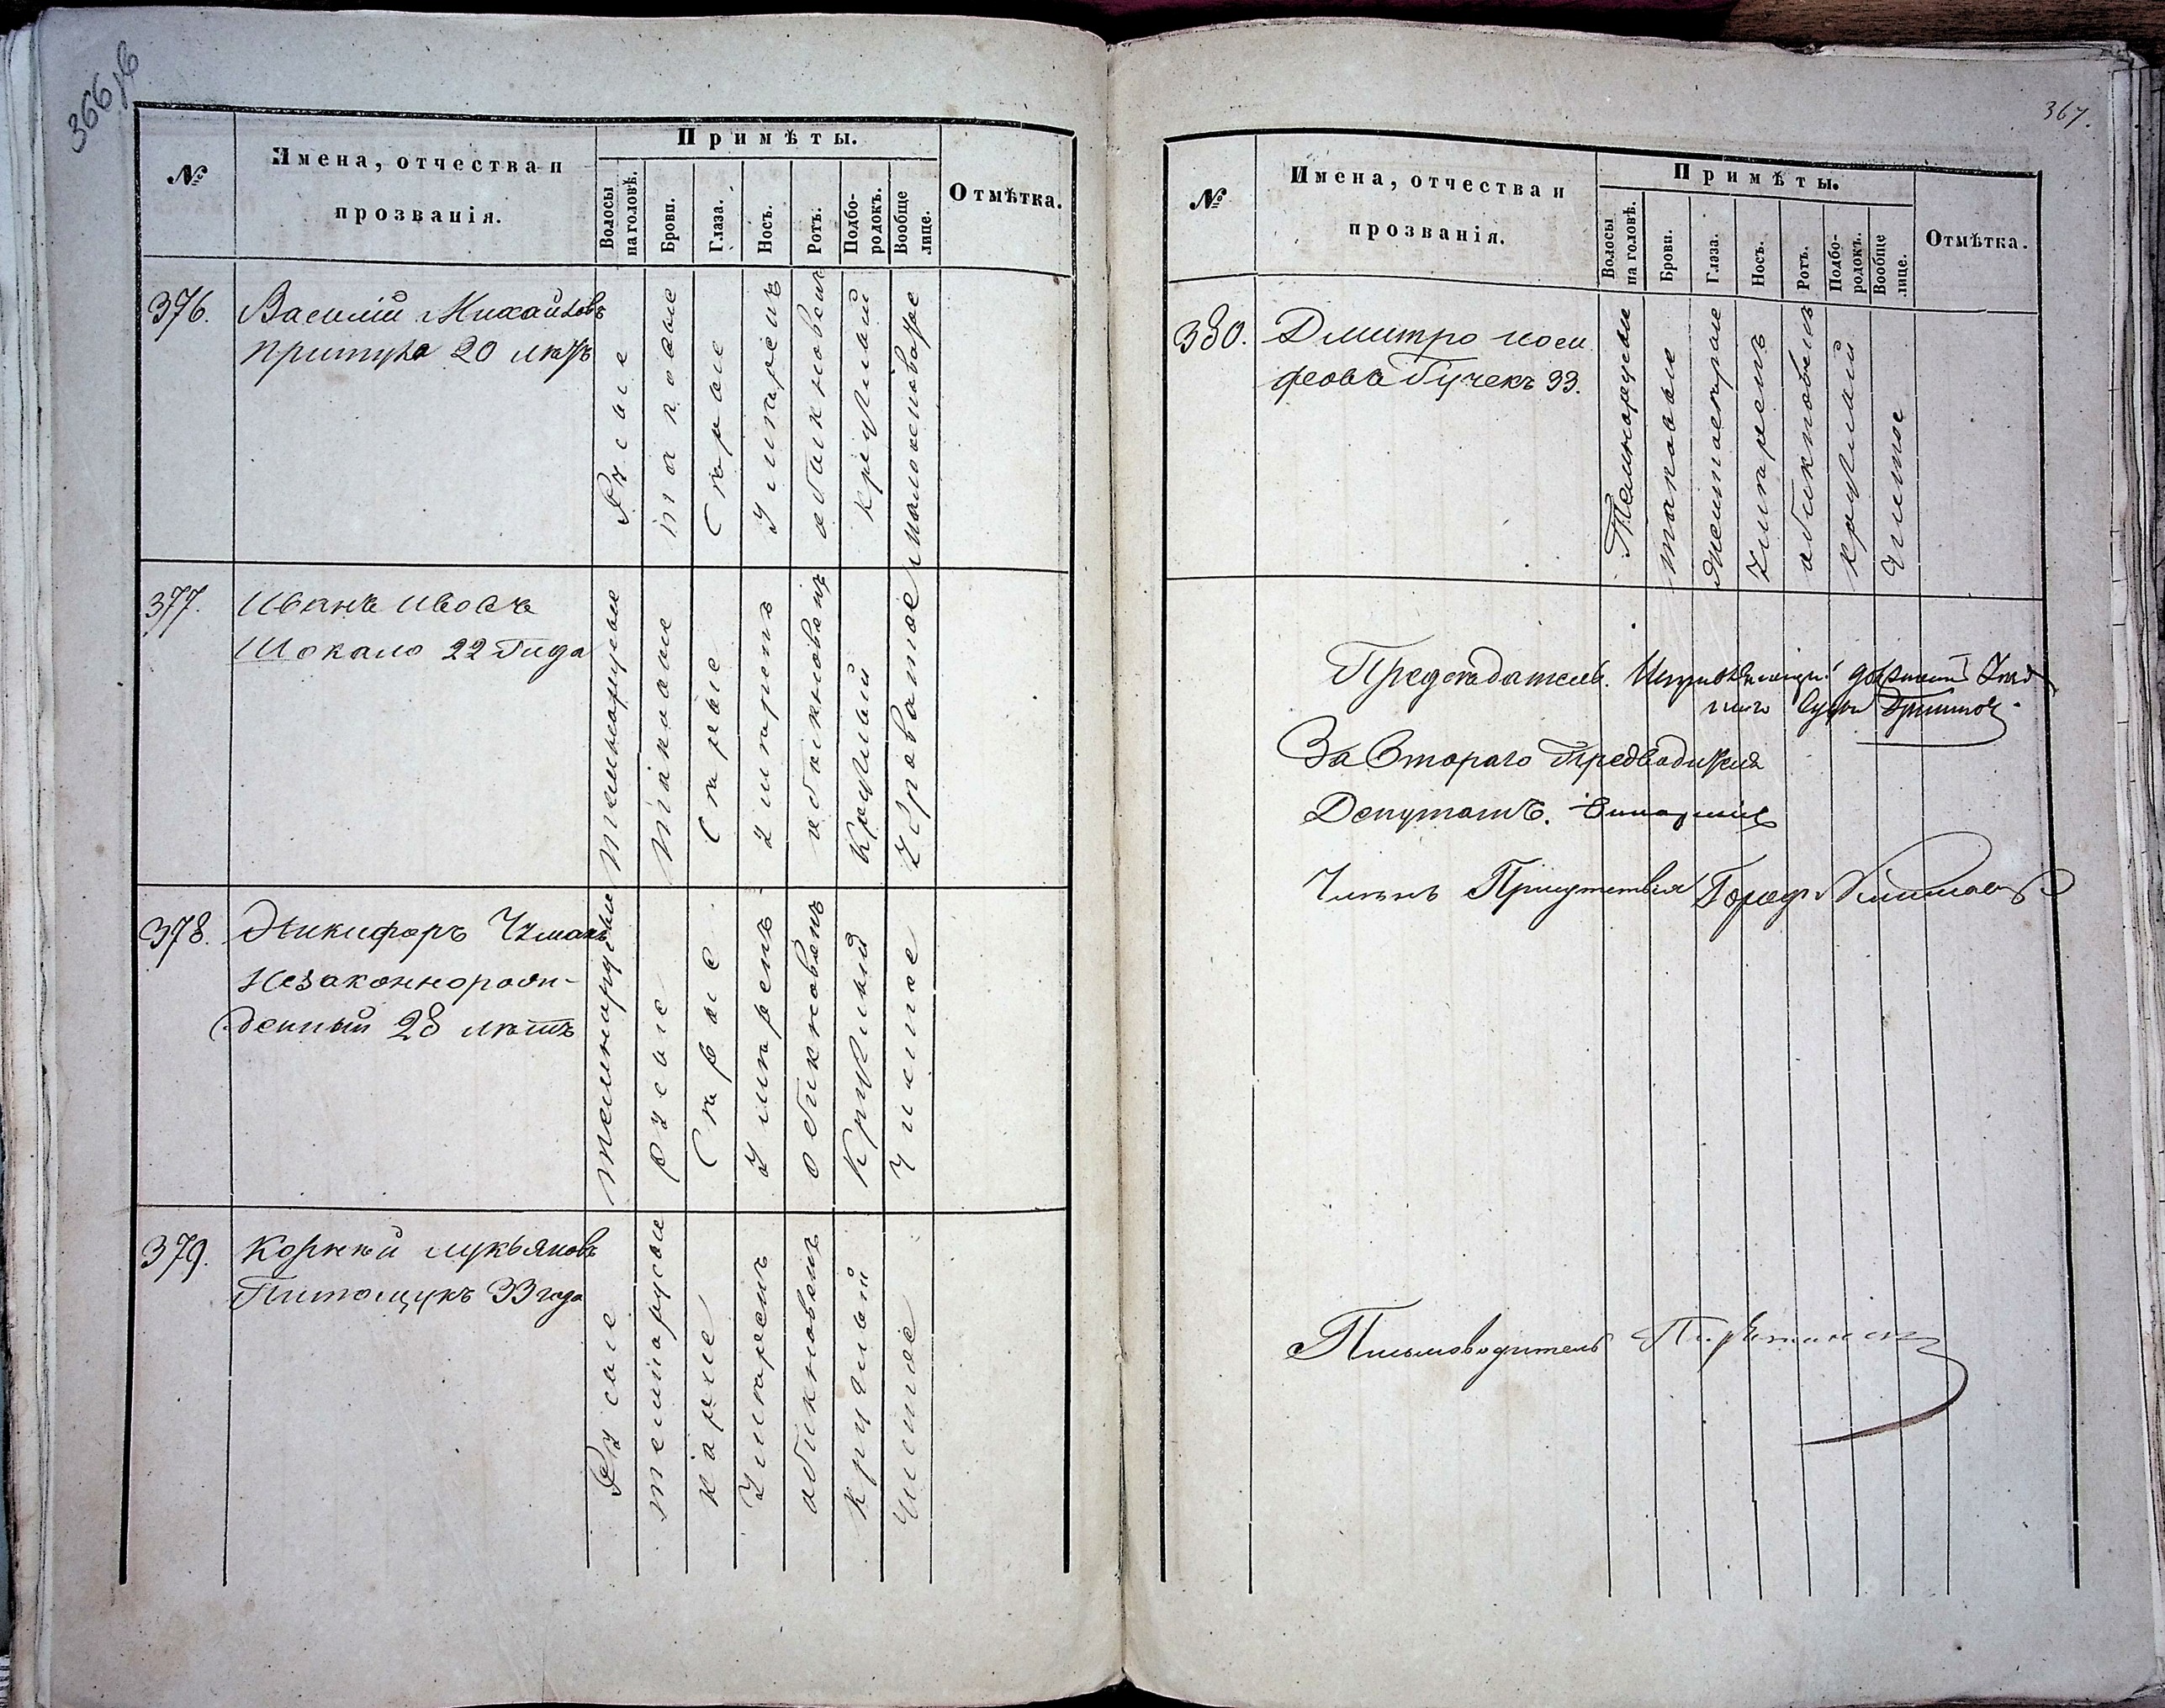 366 об
№
Имена, отчества и
прозванія.
Примѣты.
Волосы
на головѣ.
Брови.
Глаза.
Носъ.
Ротъ.
Подбо-
родокъ.
Вообще
лице.
Отмѣтка.
376.
Василій Михайловъ
Притула 20 лѣтъ
Русые
таковые
Сѣрые
Умѣренъ
обыкновенъ
круглый
377.
Иванъ
Шокало 22 Года
темнорусые
таковые
Сѣрые
умѣренъ
обыкновенъ
Круглый
378.
Никифоръ Чумакъ
Незаконнорож-
денный 28 лѣтъ
темнорусые
русые
Сѣрые
Умѣренъ
обыкновенъ
Круглый
Чистое
379.
Корнѣй Лукьяновъ
33 года
Русые
темнорусые
каріе
Умѣренъ
обыкновенъ
круглый
Чистое
367.
№
Имена, отчества и
прозванія.
Примѣты.
Волосы
на головѣ.
Брови.
Глаза.
Носъ.
Ротъ.
Подбо-
родокъ.
Вообще
лице.
Отмѣтка.
380.
Дмитро Иоси
фовъ 33.
Темнорусые
таковые
Умѣренъ
обыкновенъ
круглый
Чистое
Предсѣдатель.
За Втораго Предводителя
Депутатъ.
Членъ Присутствія
Письмоводитель